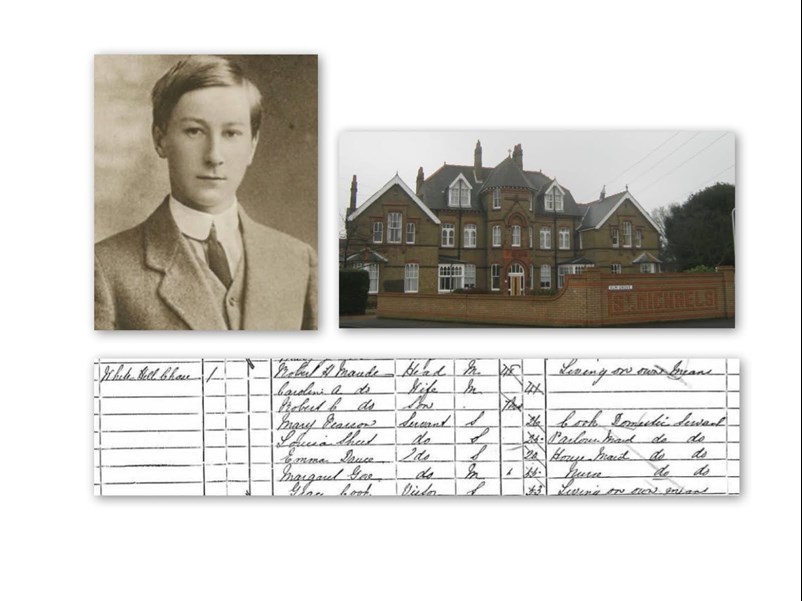 ST MICHAELS
White Hill Chase 1 Robert H Maude Head M 48 Living on own means
Caroline A do Wife M 41
Robert C do Son
Mary Pearson Servant S 26 Cook Domestic Servant
Louisa do S Parlour Maid do do
Emma do S 20 House Maid do do
Margaret do M Nurse do do
Grace Cook Visitor S 43 Living on own means